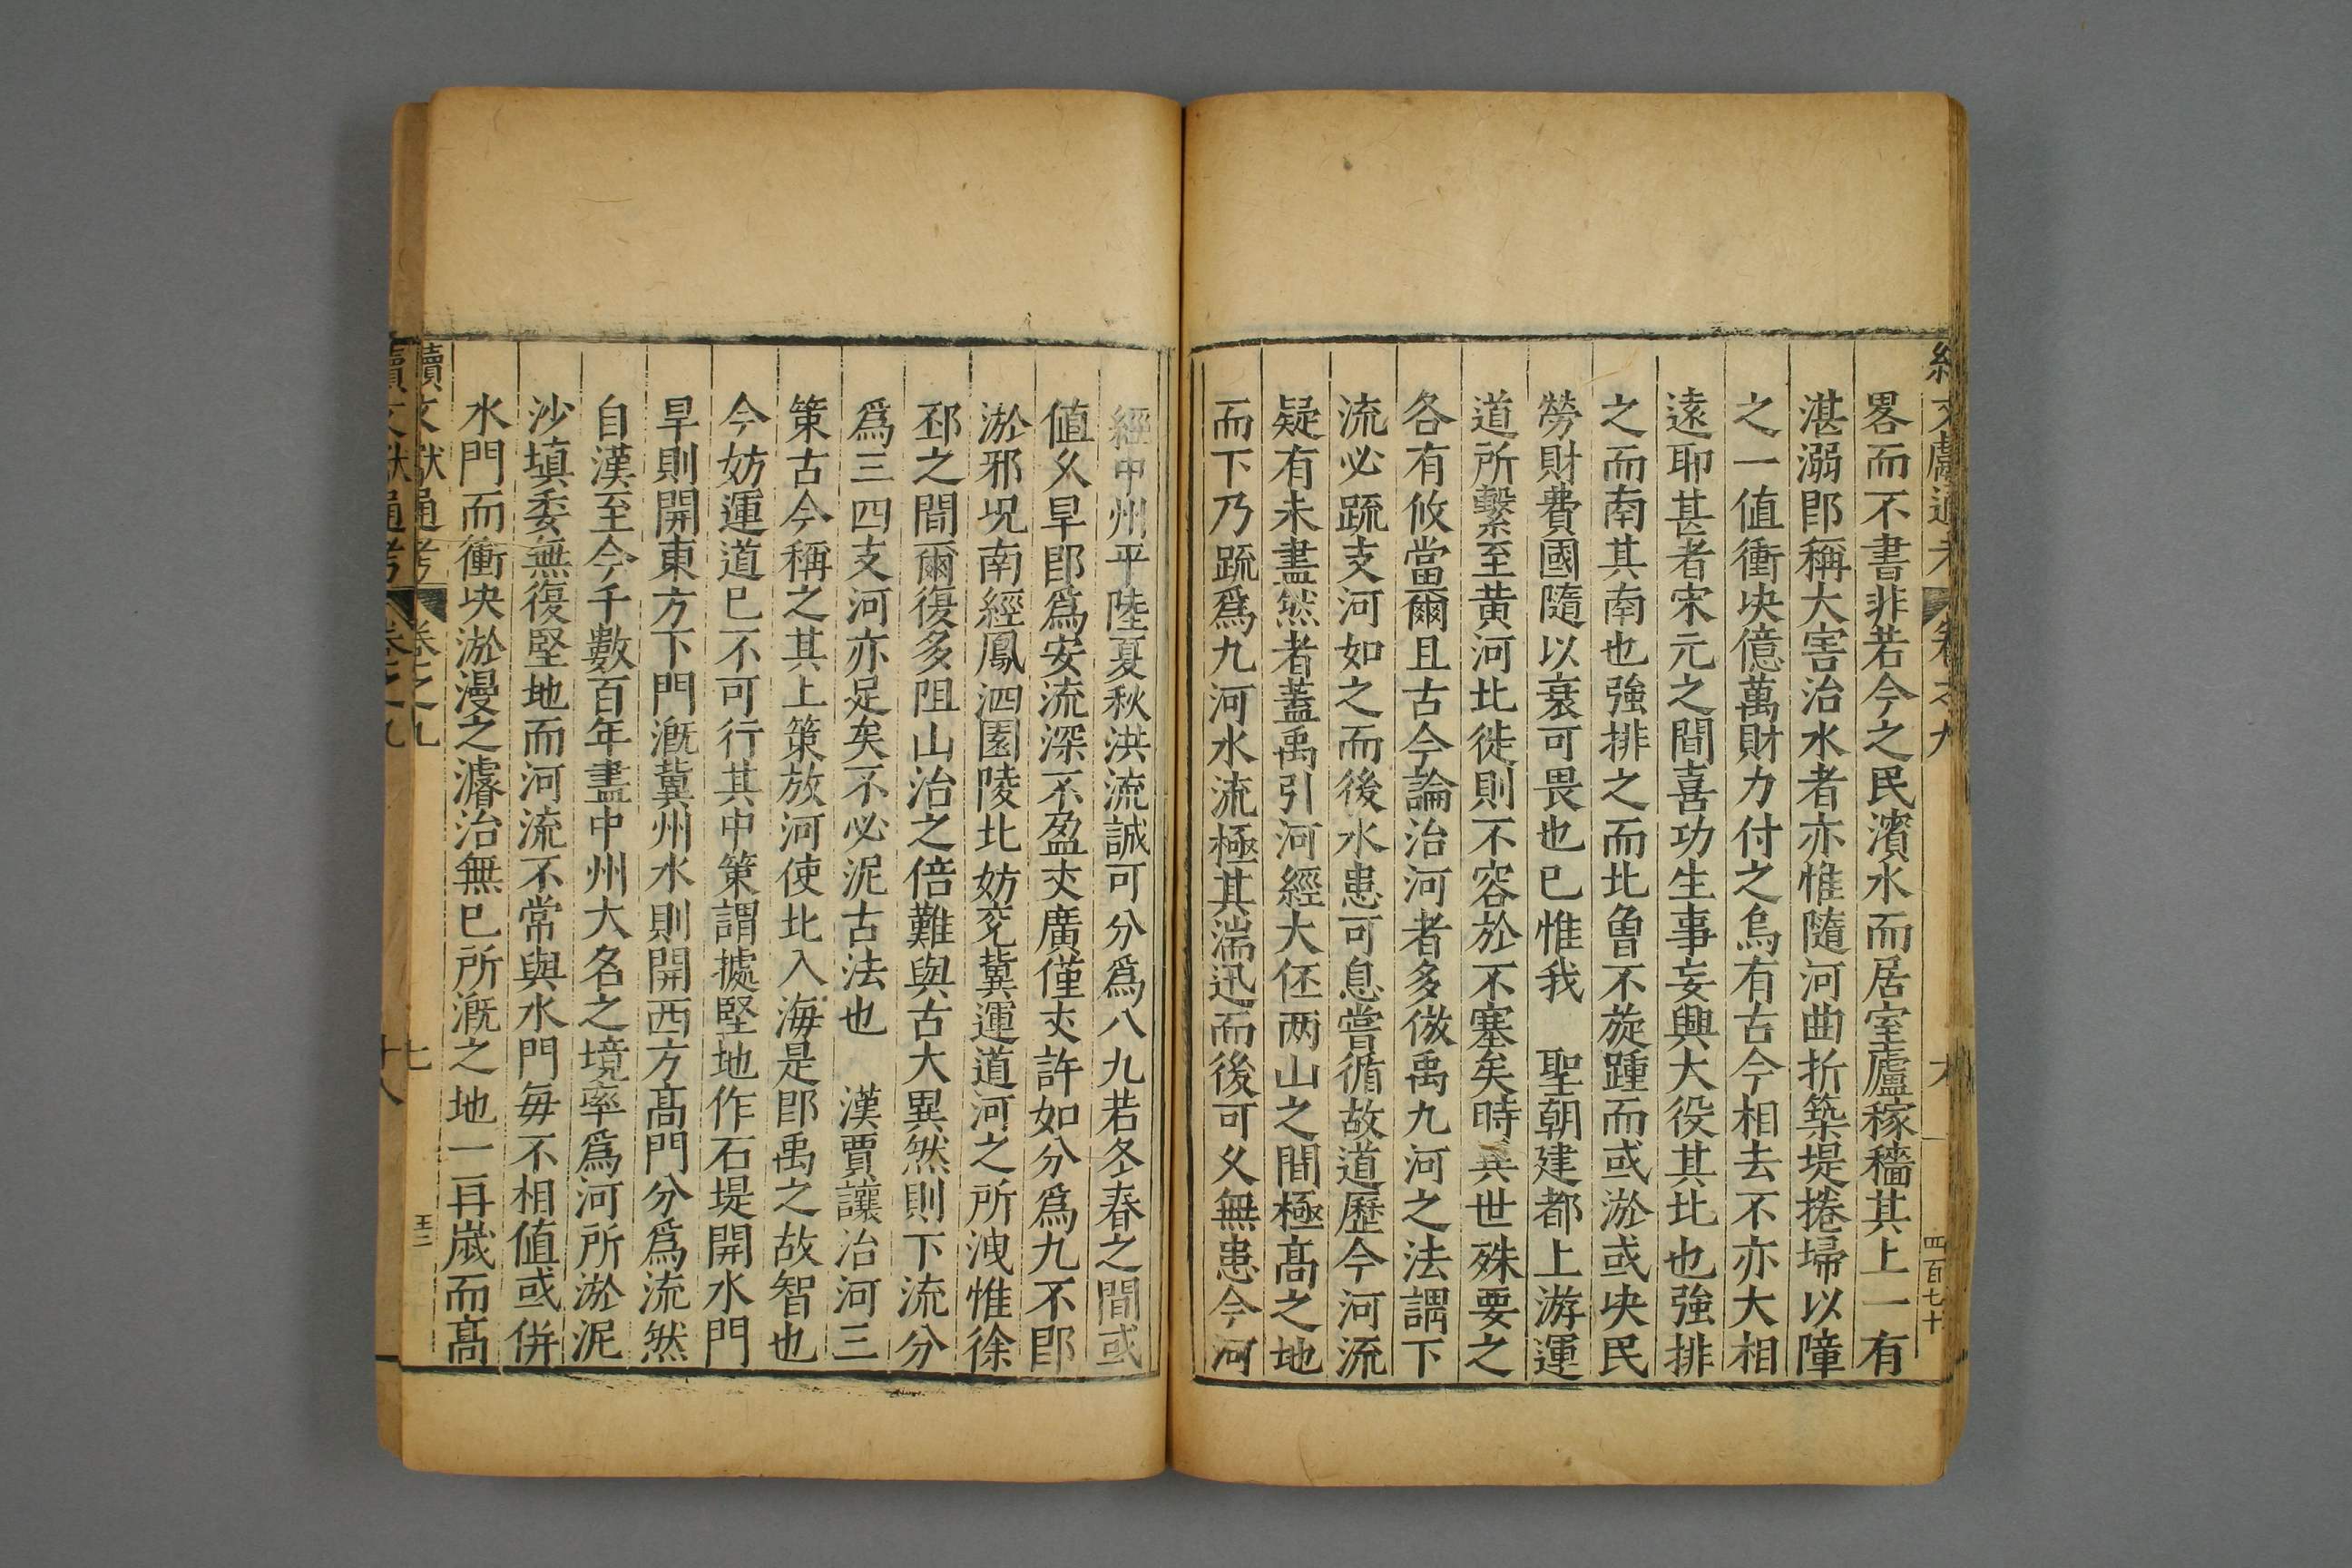 續文獻通考 卷之九 六 四百七十
畧而不書非若今之民濱水而居室廬稼穡其上一有
湛溺即稱大害治水者亦惟隨河曲折築堤捲埽以障
之一值衝決億萬財力付之烏有古今相去不亦大相
遠耶甚者宋元之間喜功生事妄興大役其北也強排
之而南其南也強排之而北曾不旋踵而或淤或决民
勞財費國隨以衰可畏也已惟我 聖朝建都上游運
道所繫至黄河北徙則不容於不塞矣時異世殊要之
各有攸當爾且古今論治河者多倣禹九河之法謂下
流必疏支河如之而後水患可息嘗循故道歷今河流
疑有未盡然者蓋禹引河經大伾两山之間極髙之地
而下乃疏爲九河水流極其湍迅而後可乂無患今河
經中州平陸夏秋洪流誠可分爲八九若冬春之間或
值乆旱即爲安流深不盈丈廣僅丈許如分爲九不即
淤邪况南經鳳泗園陵北妨兖冀運道河之所洩惟徐
邳之間爾復多阻山治之倍難與古大異然則下流分
爲三四支河亦足矣不必泥古法也 漢賈讓治河三
策古今稱之其上策放河使北入海是即禹之故智也
今妨運道已不可行其中策謂據堅地作石堤開水門
旱則開東方下門溉冀州水則開西方髙門分爲流然
自漢至今千數百年盡中州大名之境率爲河所淤泥
沙填委無復堅地而河流不常與水門每不相值或併
水門而衝决淤漫之濬治無已所溉之地一再歲而髙
續文獻通考 卷之九 七
續文獻通考 卷之九 十八